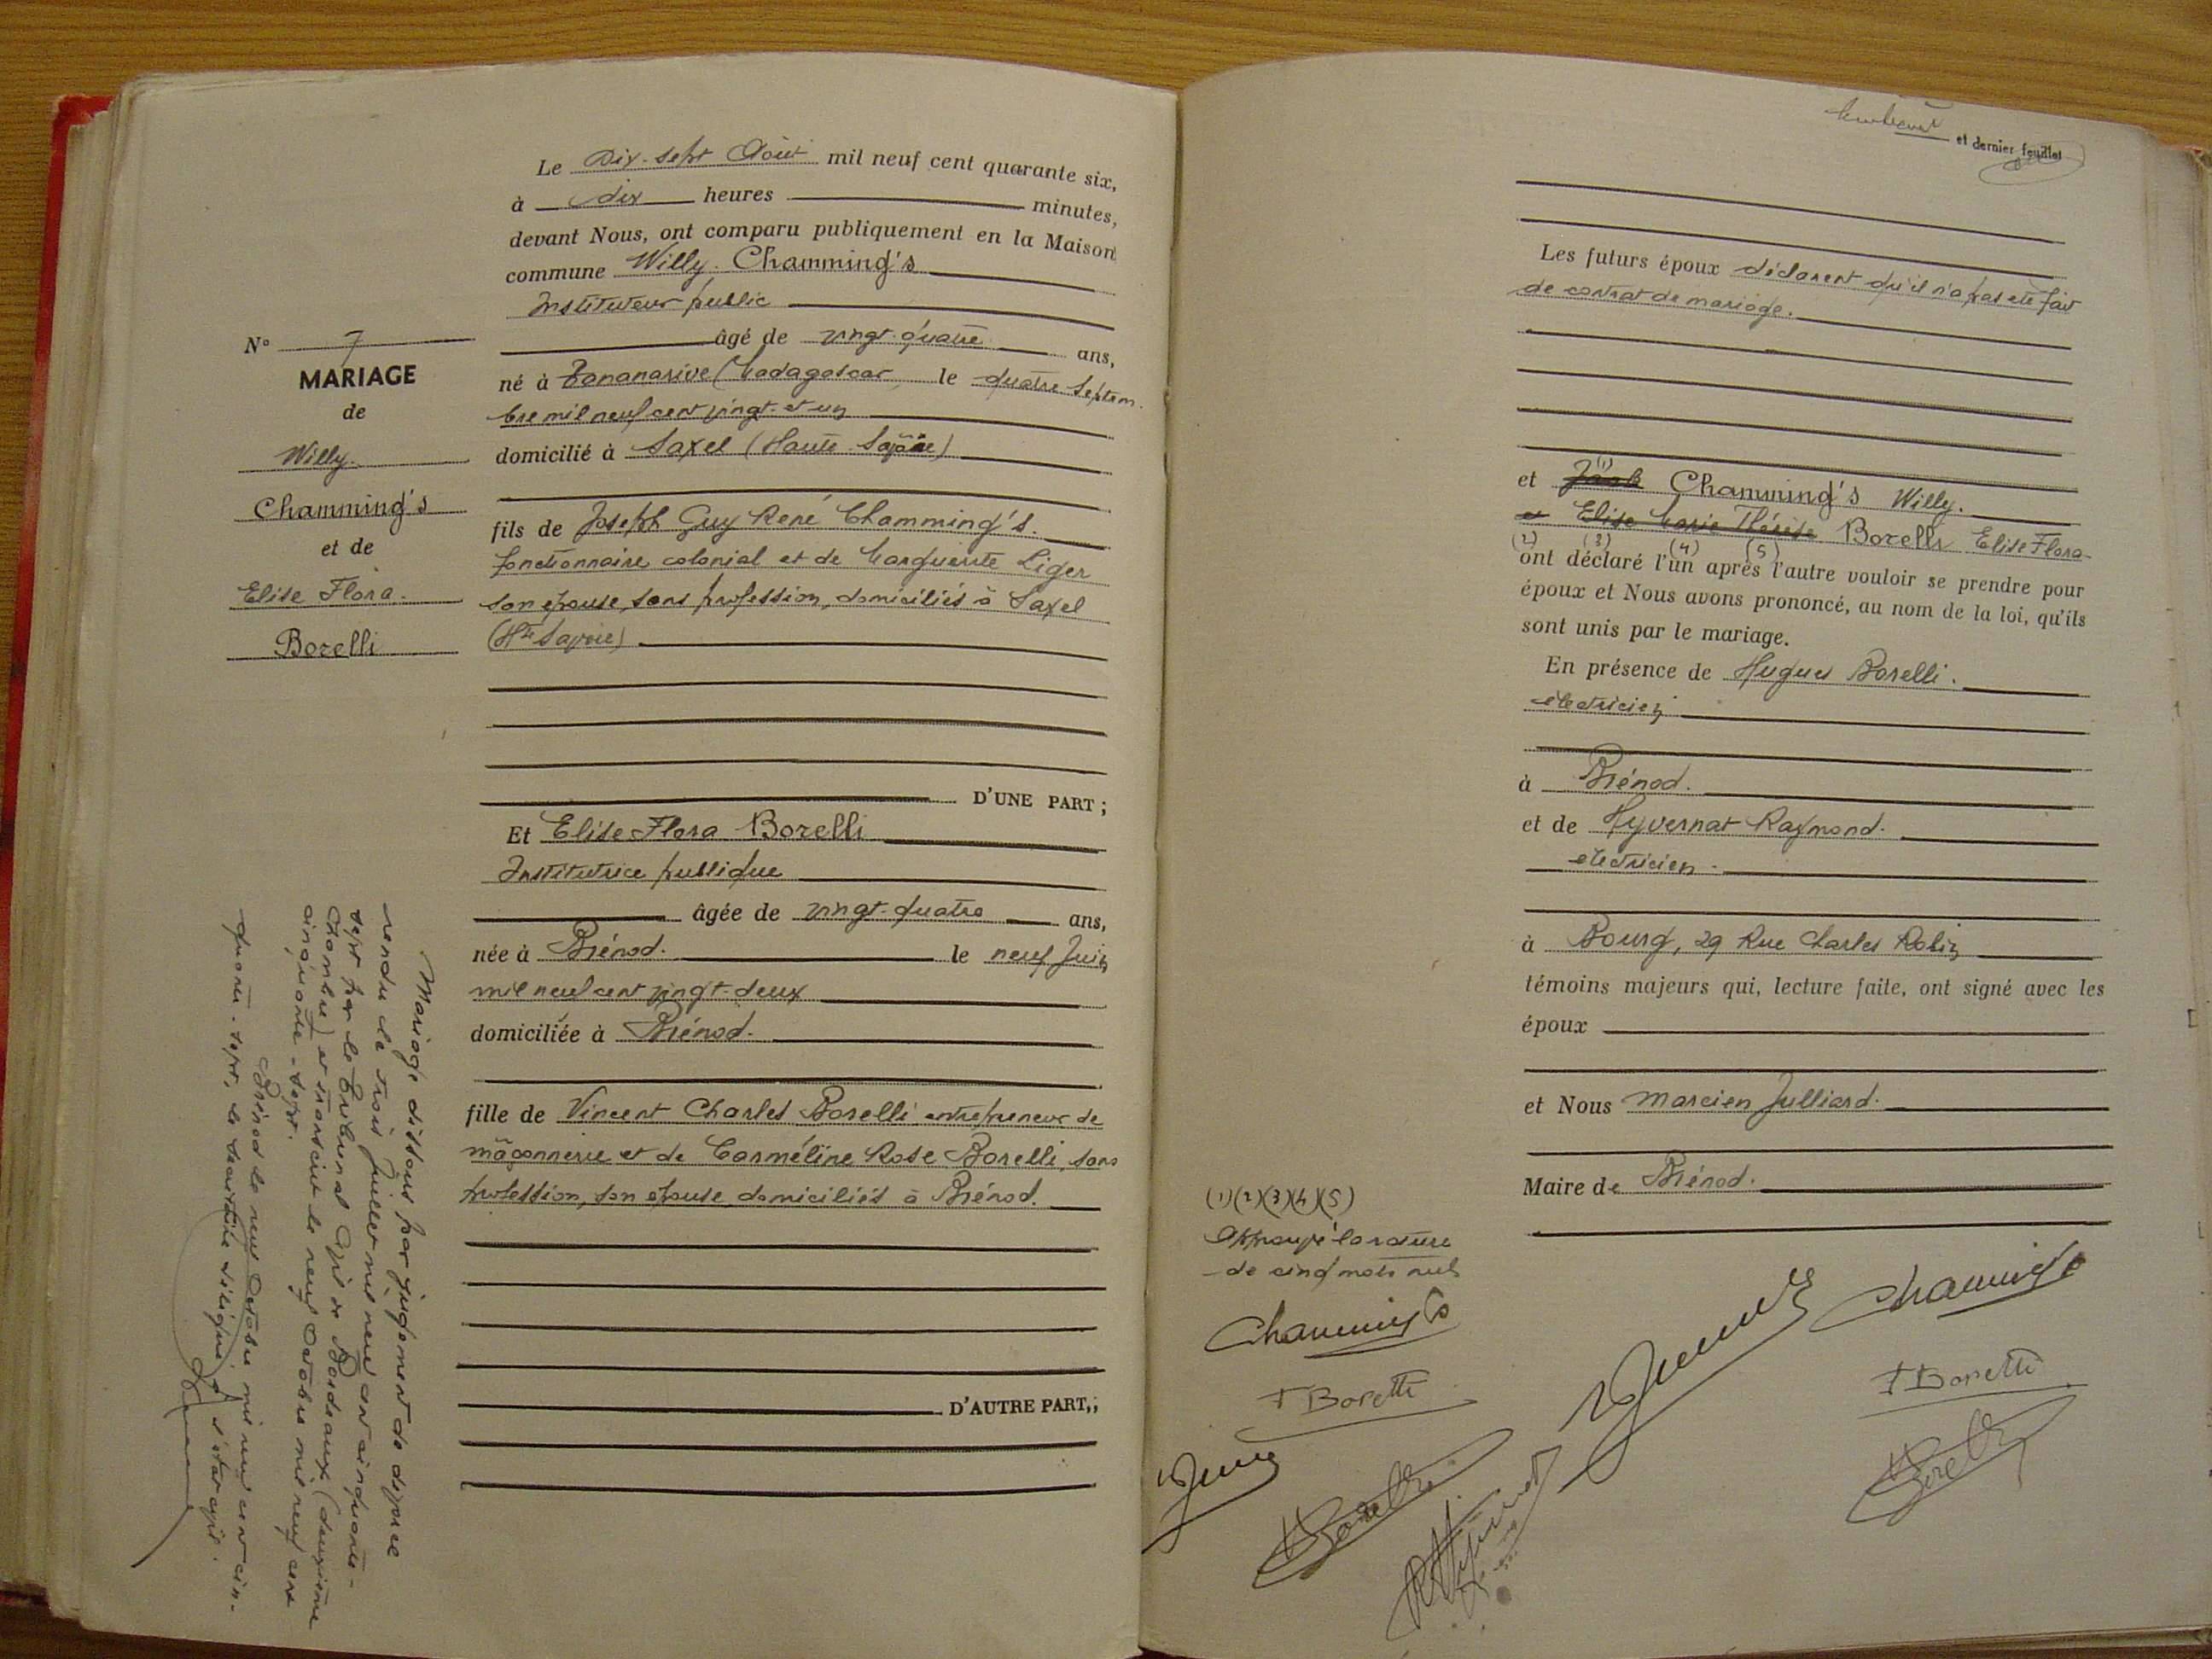 Le Dix-sept Août mil neuf cent quarante six,
à dix heures minutes,
devant Nous, ont comparu publiquement en la Maison
commune Willy Chamming's
Instituteur public
âgé de vingt-quatre ans,
né à Tananarive (Madagascar) le quatre Septem-
bre mil neuf cent vingt-et-un
domicilié à Saxel (Haute-Savoie)
fils de Joseph Guy René Chamming's.
fonctionnaire colonial et de Marguerite Liger
son épouse, sans profession, domiciliés à Saxel
(Hte Savoie)
D'UNE PART ;
Et Elise Flora Borelli
Institutrice publique
âgée de vingt-quatre ans,
née à Brénod. le neuf Juin
mil neuf cent vingt-deux
domiciliée à Brénod.
fille de Vincent Charles Borelli entrepreneur de
maçonnerie et de Carméline Rose Borelli, sans
profession, son épouse, domiciliés à Brénod.
D'AUTRE PART,;
N° 7
MARIAGE
de
Willy.
Chamming's
et de
Elise Flora.
Borelli
Mariage dissous par jugement de divorce
rendu le trois Juillet mil neuf cent cinquante-
sept par le Tribunal Civil de Bordeaux (deuxième
Chambre) et transcrit le neuf Octobre mil neuf cent
cinquante-sept.
Brénod le neuf Octobre mil neuf cent cin-
quante-sept, le Secrétaire délégué d'état civil.
et dernier feuillet
Les futurs époux déclarent qu'il n'a pas été fait
de contrat de mariage.
et (1) Chamming's Willy.
et Elise Marie Thérèse Borelli Elise Flora
(2) (3) (4) (5)
ont déclaré l'un après l'autre vouloir se prendre pour
époux et Nous avons prononcé, au nom de la loi, qu'ils
sont unis par le mariage.
En présence de Hugues Borelli.
électricien
à Brénod.
et de Hyvernat Raymond.
électricien.
à Bourg, 29 Rue Charles Robin
témoins majeurs qui, lecture faite, ont signé avec les
époux
et Nous Marcien Julliard.
Maire de Brénod.
(1)(2)(3)(4)(5)
Approuvé la rature
de cinq mots nuls
Chamming's
F Borelli
Borelli
R Hyvernat
Chamming's
F Borelli
Borelli